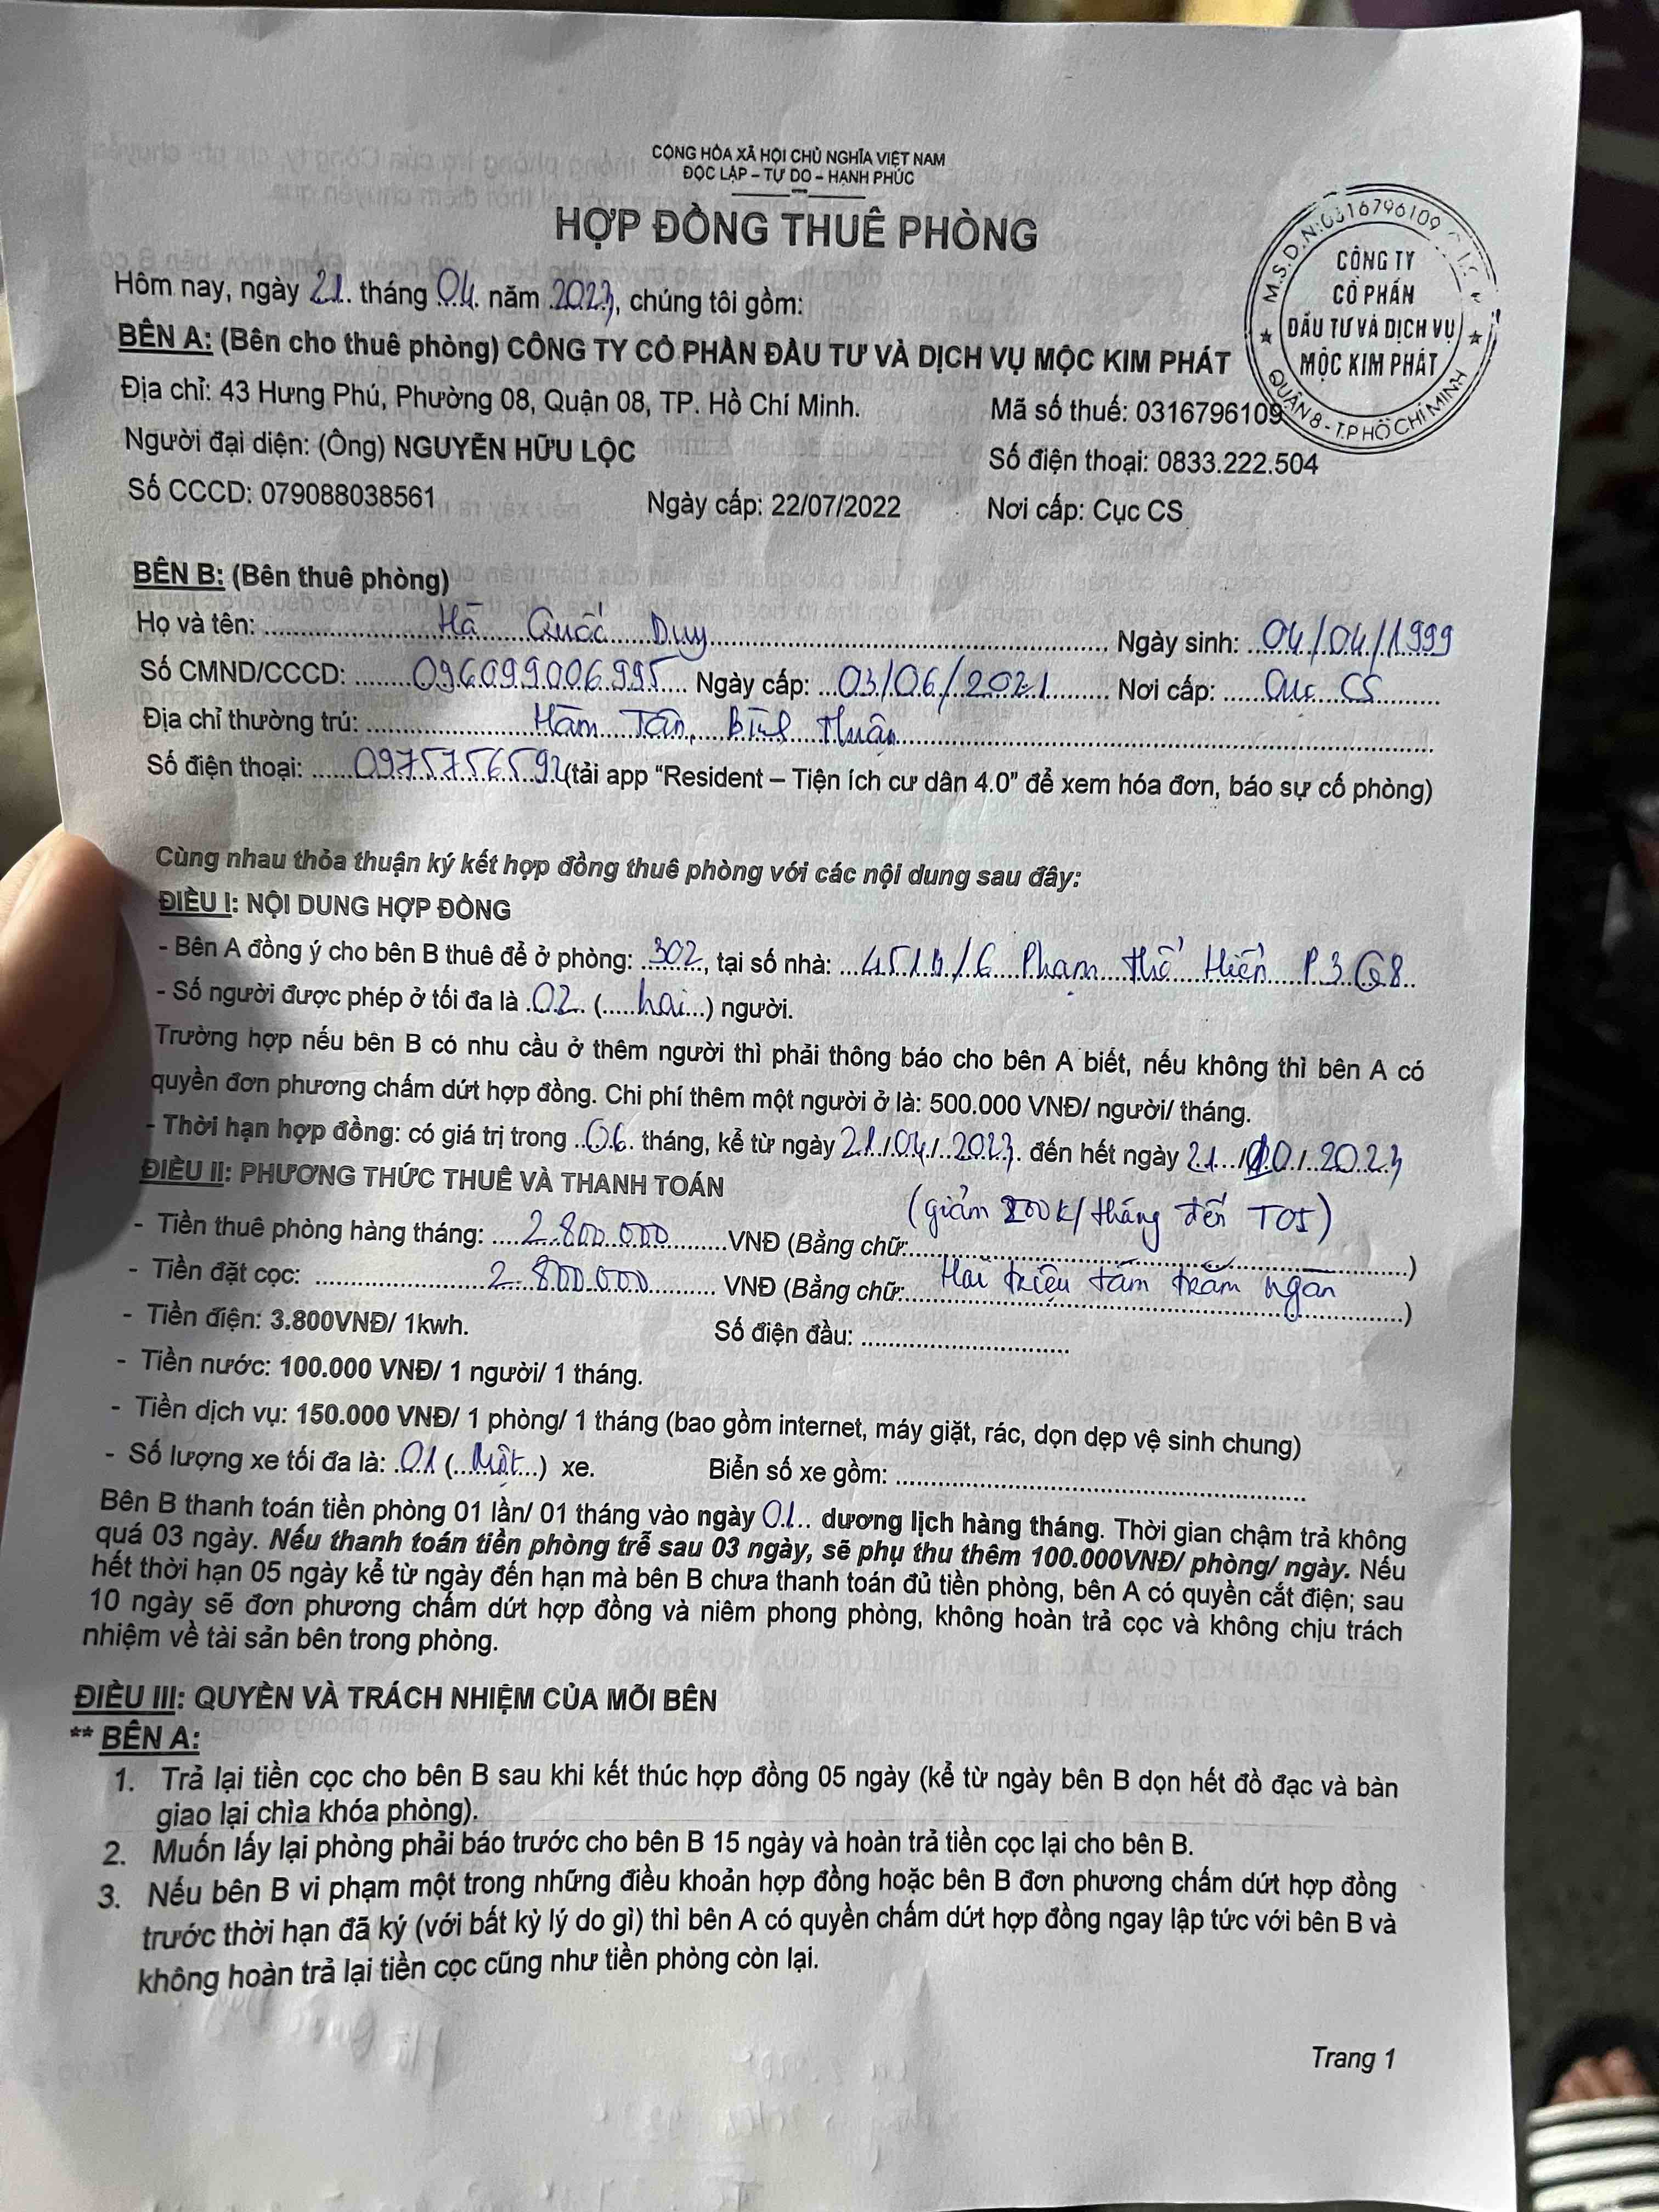 CỘNG HÒA XÃ HỘI CHỦ NGHĨA VIỆT NAM
ĐỘC LẬP – TỰ DO – HẠNH PHÚC
HỢP ĐỒNG THUÊ PHÒNG
M.S.D.N:0316796109
CÔNG TY
CỔ PHẦN
ĐẦU TƯ VÀ DỊCH VỤ
MỘC KIM PHÁT
QUẬN 8 - T.P HỒ CHÍ MINH
Hôm nay, ngày 21 tháng 04 năm 2023, chúng tôi gồm:
BÊN A: (Bên cho thuê phòng) CÔNG TY CỔ PHẦN ĐẦU TƯ VÀ DỊCH VỤ MỘC KIM PHÁT
Địa chỉ: 43 Hưng Phú, Phường 08, Quận 08, TP. Hồ Chí Minh. Mã số thuế: 0316796109
Người đại diện: (Ông) NGUYỄN HỮU LỘC Số điện thoại: 0833.222.504
Số CCCD: 079088038561 Ngày cấp: 22/07/2022 Nơi cấp: Cục CS
BÊN B: (Bên thuê phòng)
Họ và tên: Hà Quốc Duy Ngày sinh: 04/04/1999
Số CMND/CCCD: 096099006995 Ngày cấp: 03/06/2021 Nơi cấp: Cục CS
Địa chỉ thường trú: Hàm Tân, Bình Thuận
Số điện thoại: 0975756592 (tải app “Resident – Tiện ích cư dân 4.0” để xem hóa đơn, báo sự cố phòng)
Cùng nhau thỏa thuận ký kết hợp đồng thuê phòng với các nội dung sau đây:
ĐIỀU I: NỘI DUNG HỢP ĐỒNG
- Bên A đồng ý cho bên B thuê để ở phòng: 302, tại số nhà: Phạm Thế Hiển P.3 Q8
- Số người được phép ở tối đa là 02 (hai) người.
Trường hợp nếu bên B có nhu cầu ở thêm người thì phải thông báo cho bên A biết, nếu không thì bên A có
quyền đơn phương chấm dứt hợp đồng. Chi phí thêm một người ở là: 500.000 VNĐ/ người/ tháng.
- Thời hạn hợp đồng: có giá trị trong 06 tháng, kể từ ngày 21/04/2023 đến hết ngày 21/10/2023
ĐIỀU II: PHƯƠNG THỨC THUÊ VÀ THANH TOÁN
(giảm 200k/tháng đến T05)
- Tiền thuê phòng hàng tháng: 2.800.000 VNĐ (Bằng chữ: )
- Tiền đặt cọc: 2.800.000 VNĐ (Bằng chữ: Hai triệu tám trăm ngàn )
- Tiền điện: 3.800VNĐ/ 1kwh. Số điện đầu:
- Tiền nước: 100.000 VNĐ/ 1 người/ 1 tháng.
- Tiền dịch vụ: 150.000 VNĐ/ 1 phòng/ 1 tháng (bao gồm internet, máy giặt, rác, dọn dẹp vệ sinh chung)
- Số lượng xe tối đa là: 01 (Một) xe. Biển số xe gồm:
Bên B thanh toán tiền phòng 01 lần/ 01 tháng vào ngày 01 dương lịch hàng tháng. Thời gian chậm trả không
quá 03 ngày. Nếu thanh toán tiền phòng trễ sau 03 ngày, sẽ phụ thu thêm 100.000VNĐ/ phòng/ ngày. Nếu
hết thời hạn 05 ngày kể từ ngày đến hạn mà bên B chưa thanh toán đủ tiền phòng, bên A có quyền cắt điện; sau
10 ngày sẽ đơn phương chấm dứt hợp đồng và niêm phong phòng, không hoàn trả cọc và không chịu trách
nhiệm về tài sản bên trong phòng.
ĐIỀU III: QUYỀN VÀ TRÁCH NHIỆM CỦA MỖI BÊN
** BÊN A:
1. Trả lại tiền cọc cho bên B sau khi kết thúc hợp đồng 05 ngày (kể từ ngày bên B dọn hết đồ đạc và bàn
giao lại chìa khóa phòng).
2. Muốn lấy lại phòng phải báo trước cho bên B 15 ngày và hoàn trả tiền cọc lại cho bên B.
3. Nếu bên B vi phạm một trong những điều khoản hợp đồng hoặc bên B đơn phương chấm dứt hợp đồng
trước thời hạn đã ký (với bất kỳ lý do gì) thì bên A có quyền chấm dứt hợp đồng ngay lập tức với bên B và
không hoàn trả lại tiền cọc cũng như tiền phòng còn lại.
Trang 1